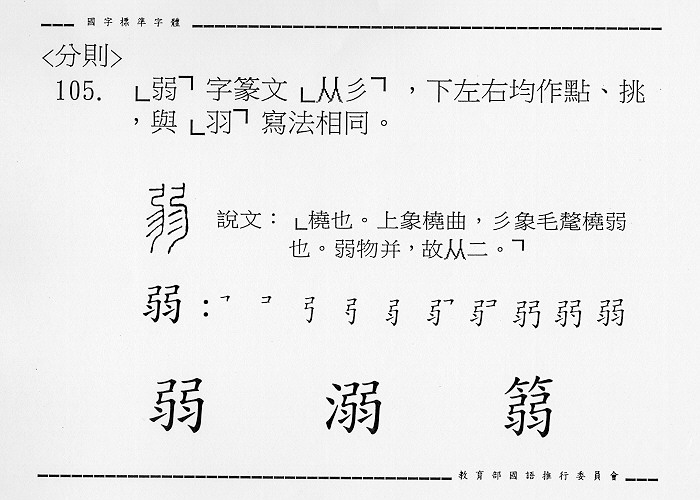 國字標準字體
<分則>
105. ㄴ弱ㄱ字篆文ㄴ从彡ㄱ，下左右均作點、挑
，與ㄴ羽ㄱ寫法相同。
說文：ㄴ橈也。上象橈曲，彡象毛氂橈弱
也。弱物并，故从二。ㄱ
弱：
弱 溺 篛
教育部國語推行委員會